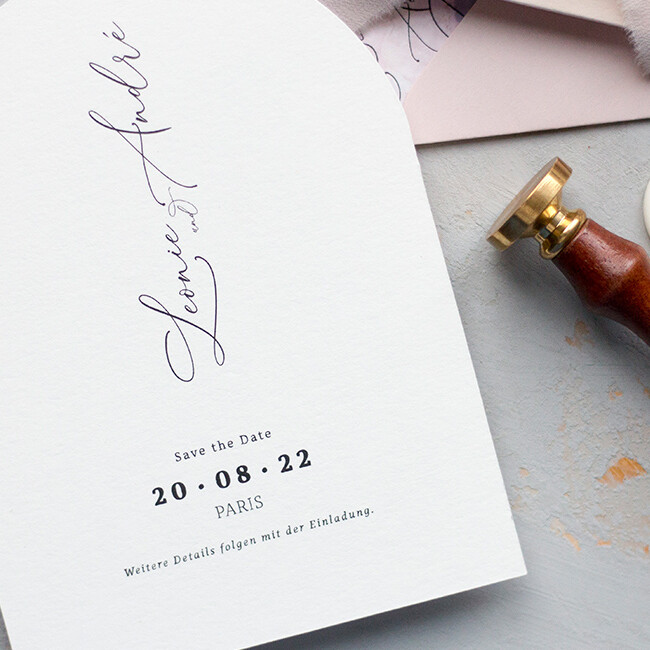 Leonie und André
Save the Date
20 · 08 · 22
PARIS
Weitere Details folgen mit der Einladung.